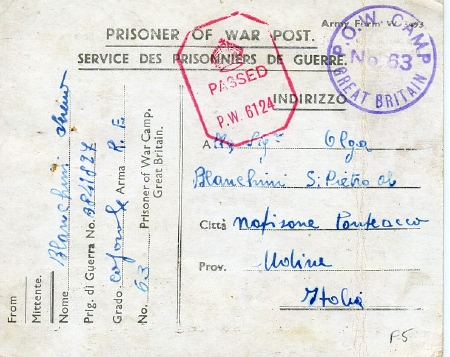 Army Form W. 3493
PRISONER OF WAR POST.
SERVICE DES PRISONNIERS DE GUERRE.
PASSED
P.W. 6124
P.O.W. CAMP
No. 63
GREAT BRITAIN
INDIRIZZO
Alla Sigra Olga
Blanchini S. Pietro al
Città Natisone Ponteacco
Prov. Udine
Italia
From
Mittente.
Nome Blanchini
Prig. di Guerra No.
Grado Arma R. E.
No. 63 Prisoner of War Camp.
Great Britain.
F5